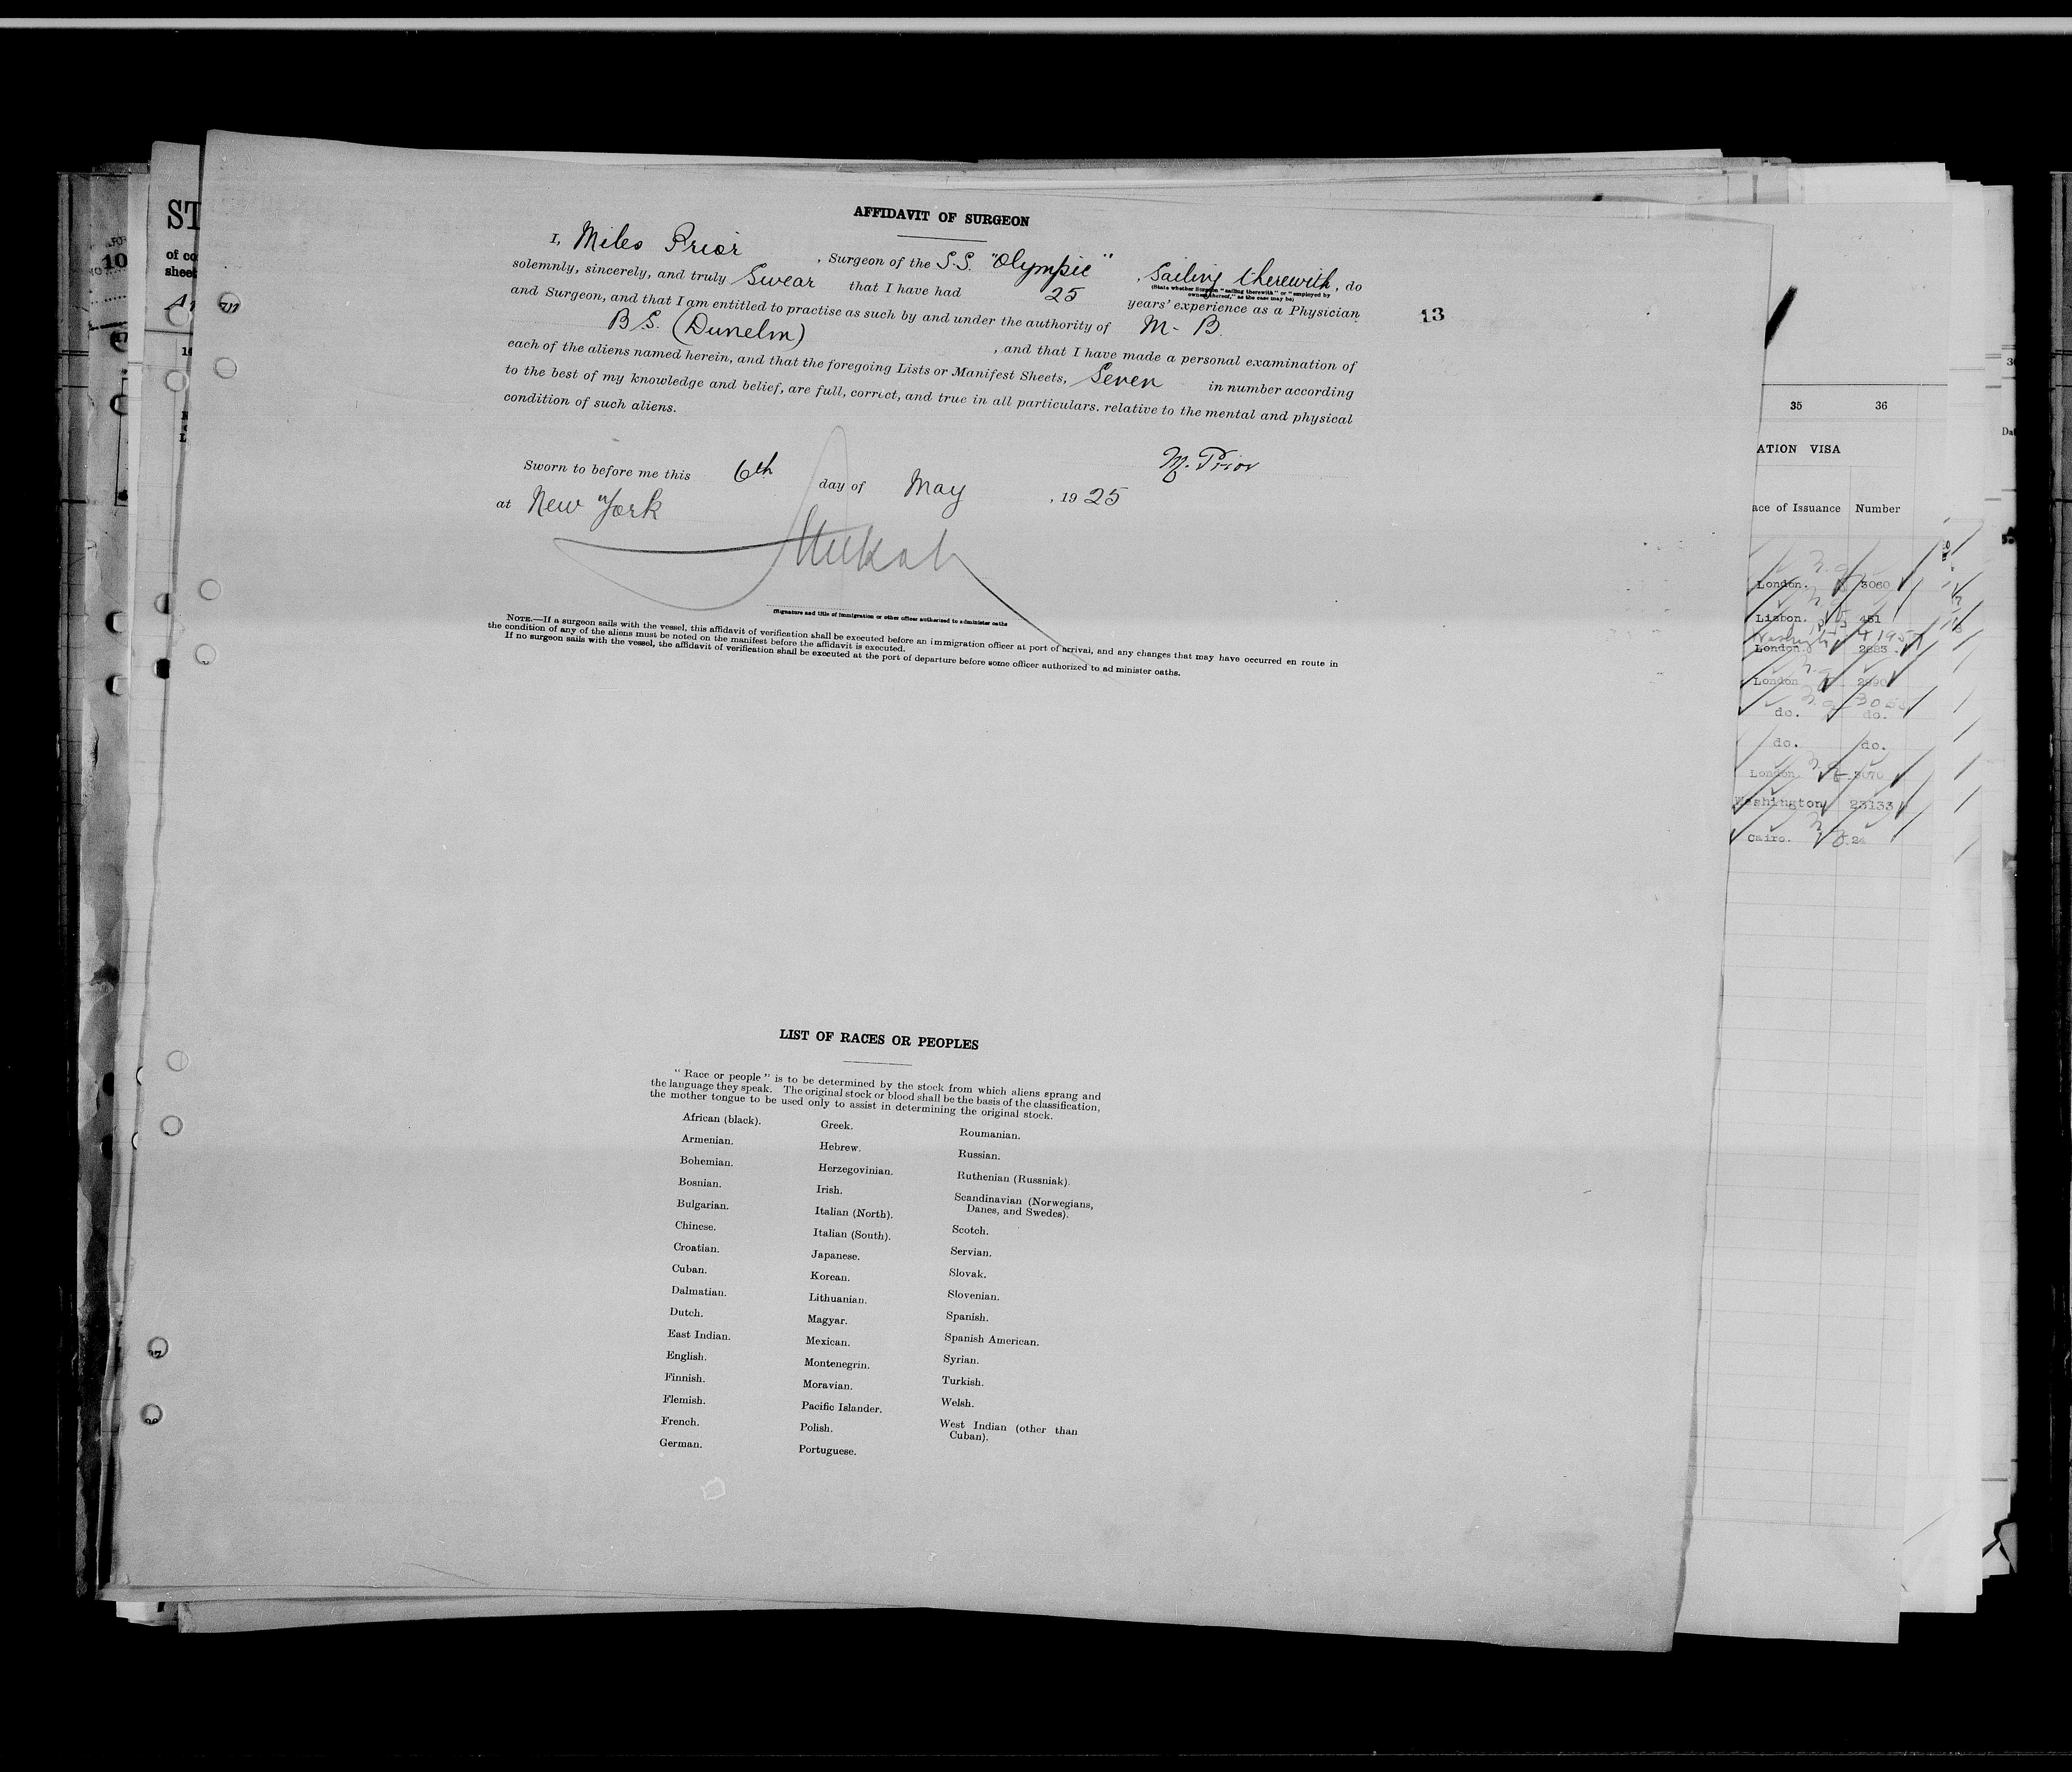 AFFIDAVIT OF SURGEON
I, Miles Prior, Surgeon of the S.S. "Olympic", Sailing therewith, do
(State whether Surgeon "sailing therewith" or "employed by
owners thereof," as the case may be)
solemnly, sincerely, and truly Swear that I have had 25 years' experience as a Physician
and Surgeon, and that I am entitled to practise as such by and under the authority of M. B.
B S. (Dunelm), and that I have made a personal examination of
each of the aliens named herein, and that the foregoing Lists or Manifest Sheets, Seven in number according
to the best of my knowledge and belief, are full, correct, and true in all particulars. relative to the mental and physical
condition of such aliens.
M. Prior
Sworn to before me this 6th day of May, 1925
at New York
(Signature and title of immigration or other officer authorized to administer oaths
NOTE.—If a surgeon sails with the vessel, this affidavit of verification shall be executed before an immigration officer at port of arrival, and any changes that may have occurred en route in
the condition of any of the aliens must be noted on the manifest before the affidavit is executed.
If no surgeon sails with the vessel, the affidavit of verification shall be executed at the port of departure before some officer authorized to administer oaths.
13
LIST OF RACES OR PEOPLES
"Race or people" is to be determined by the stock from which aliens sprang and
the language they speak. The original stock or blood shall be the basis of the classification,
the mother tongue to be used only to assist in determining the original stock.
African (black).
Armenian.
Bohemian.
Bosnian.
Bulgarian.
Chinese.
Croatian.
Cuban.
Dalmatian.
Dutch.
East Indian.
English.
Finnish.
Flemish.
French.
German.
Greek.
Hebrew.
Herzegovinian.
Irish.
Italian (North).
Italian (South).
Japanese.
Korean.
Lithuanian.
Magyar.
Mexican.
Montenegrin.
Moravian.
Pacific Islander.
Polish.
Portuguese.
Roumanian.
Russian.
Ruthenian (Russniak).
Scandinavian (Norwegians,
Danes, and Swedes).
Scotch.
Servian.
Slovak.
Slovenian.
Spanish.
Spanish American.
Syrian.
Turkish.
Welsh.
West Indian (other than
Cuban).
ST
of co
sheet
10
35 36
ATION VISA
ace of Issuance Number
London. 3060
Lisbon. 451
London. 2883
London
do. do.
do. do.
London. 3070
Washington 23133
Cairo. 24